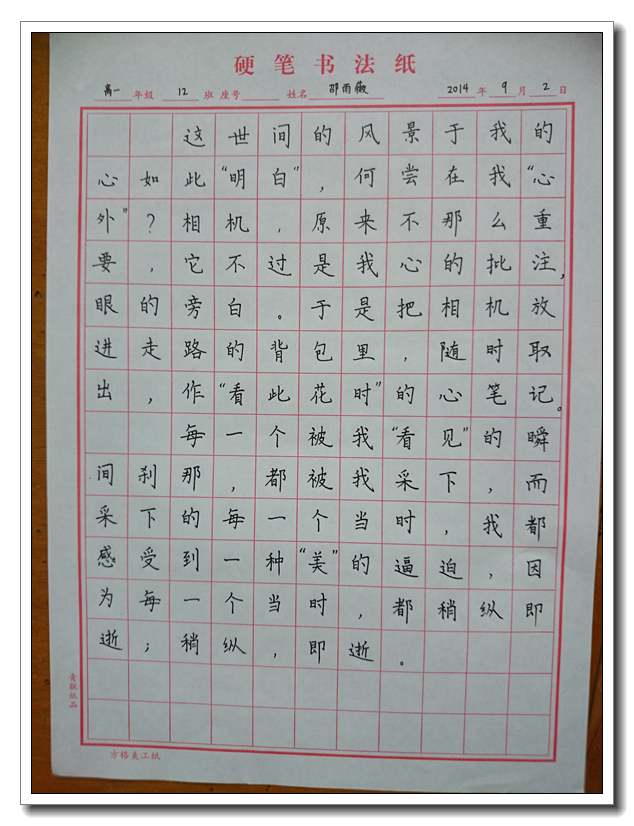 硬笔书法纸
高一年级 12 班 座号 姓名 邵雨薇 2014年9月2日
这世间的风景于我的
心如此“明白”，何尝在我“心
外”？相机，原来不那么重
要，它不过是我心的批注，
眼的旁白。于是把相机放
进走路的背包里，随时取
出，作“看此花时”的心笔记。
每一个被我“看见”的瞬
间刹那，都被我采下，而
采下的每一个当时，我都
感受到一种“美”的逼迫，因
为每一个当时，都稍纵即
逝；稍纵，即逝。
青联纸品
方格美工纸